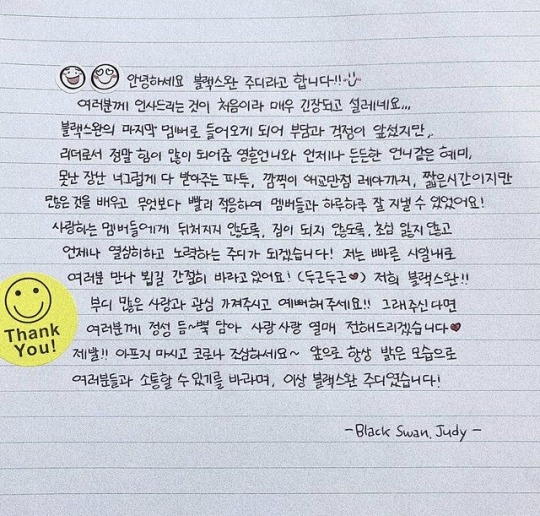 안녕하세요 블랙스완 주디라고 합니다!!
여러분께 인사드리는 것이 처음이라 매우 긴장되고 설레네요...
블랙스완의 마지막 멤버로 들어오게 되어 부담과 걱정이 앞섰지만,
리더로서 정말 힘이 많이 되어준 영흔언니와 언제나 든든한 언니같은 혜미,
못난 장난 너그럽게 다 받아주는 파투, 깜찍이 애교만점 레아까지, 짧은시간이지만
많은것을 배우고 무엇보다 빨리 적응하여 멤버들과 하루하루 잘 지낼 수 있었어요!
사랑하는 멤버들에게 뒤처지지 않도록, 짐이 되지 않도록, 초심 잃지 않고
언제나 열심히하고 노력하는 주디가 되겠습니다! 저는 빠른 시일내로
여러분 만나 뵙길 간절히 바라고있어요! (두근두근♥) 저희 블랙스완!!
부디 많은 사랑과 관심 가져주시고 예뻐해 주세요!! 그래주신다면
여러분께 정성 듬~뿍 담아 사랑 사랑 열매 전해드리겠습니다♥
제발!! 아프지 마시고 코로나 조심하세요~ 앞으로 항상 밝은 모습으로
여러분들과 소통할 수 있기를 바라며, 이상 블랙스완 주디였습니다!
-Black Swan. Judy-
Thank
You!